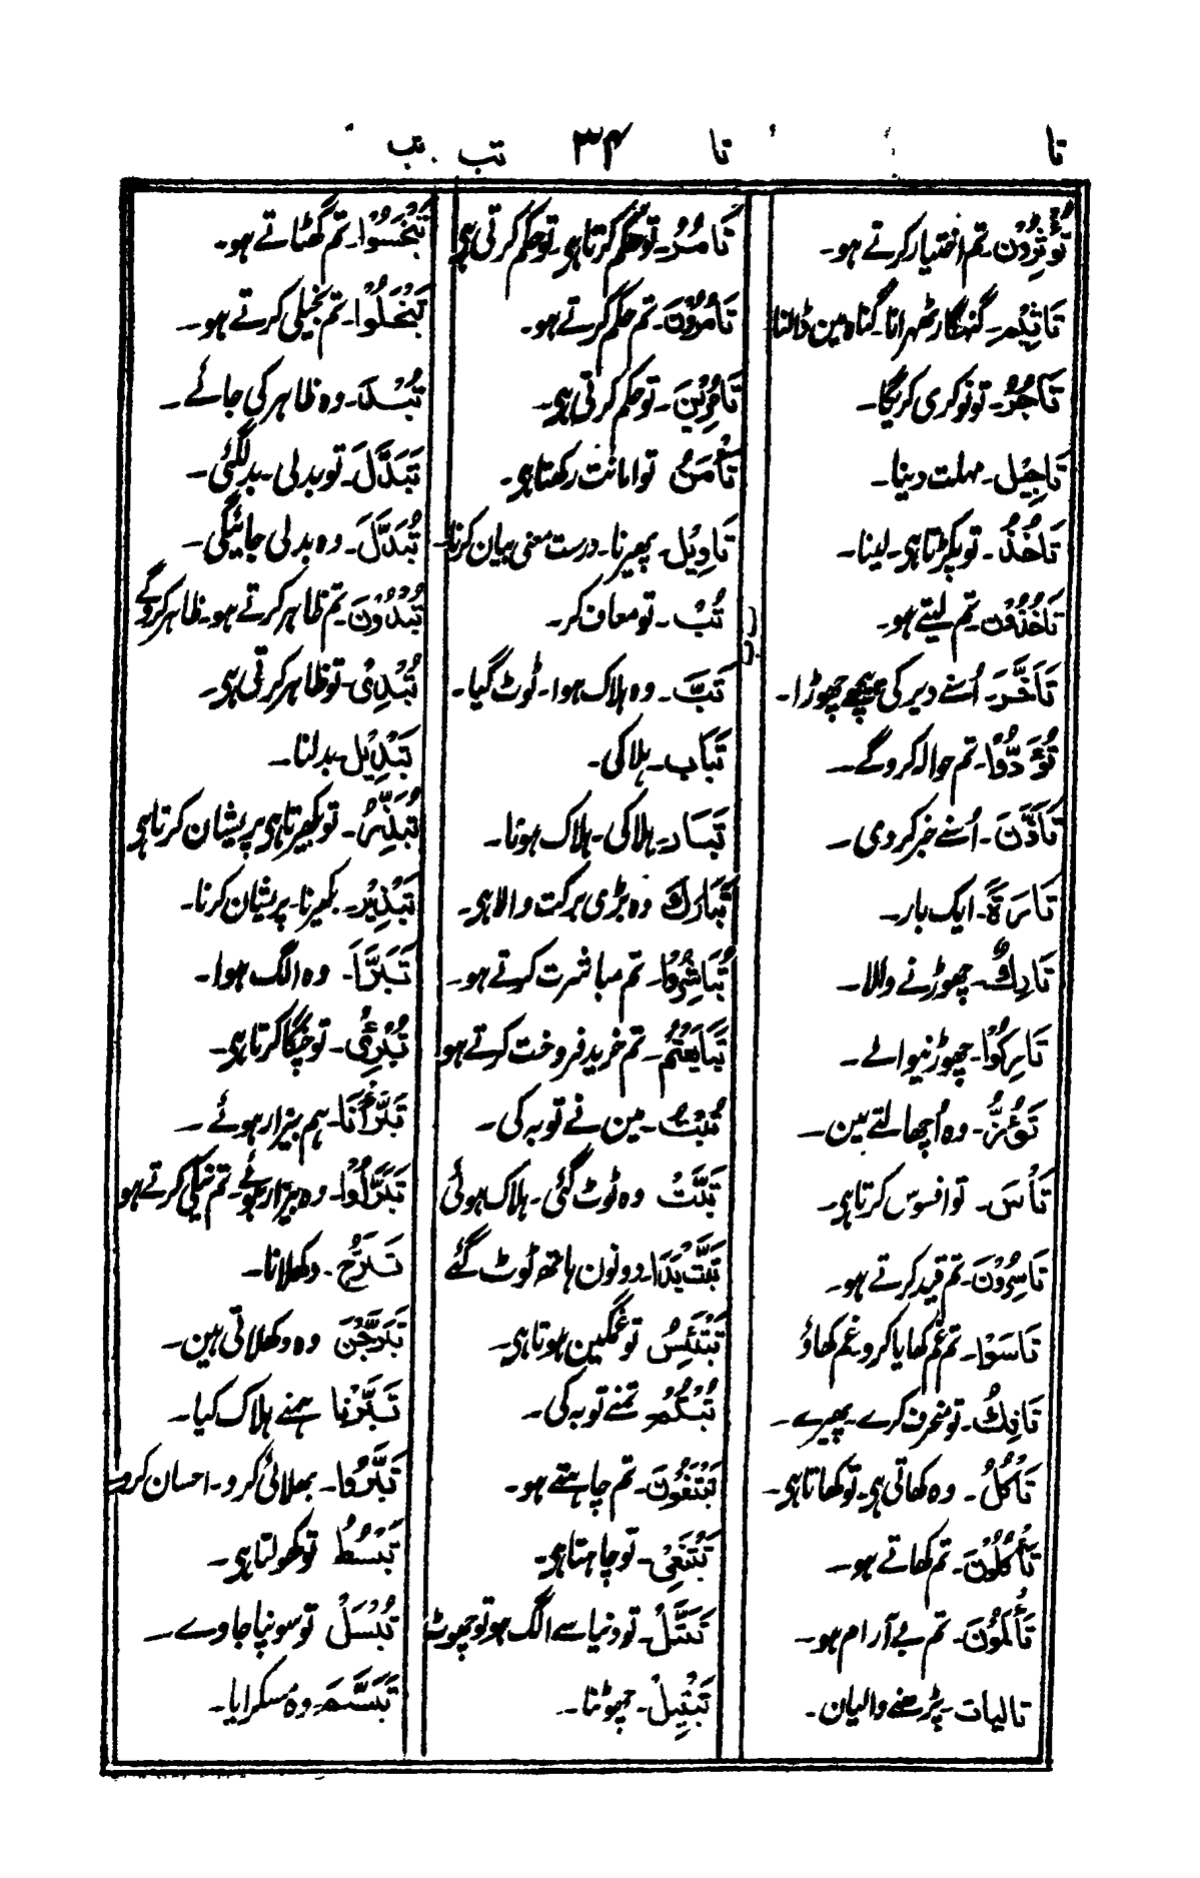 تا تا ۳۴ تب تب
تُؤْثِرُوْن۔ تم اختیار کرتے ہو۔
تَاثِیْم۔ گنہگار ٹھہرانا۔ گناہ مین ڈالنا
تَاْجُرُ۔ تو نوکری کریگا۔
تَاجِیْل۔ مہلت دینا۔
تَاخُذُ۔ تو پکڑتا ہی۔ لینا۔
تَاخُذُوْن۔ تم لیتے ہو۔
تَاَخَّرَ۔ اُسنے دیر کی پیچھے چھوڑا۔
تُؤَدُّوْا۔ تم حوالہ کروگے۔
تَاَذَّنَ۔ اُسنے خبر کر دی۔
تَارَةً۔ ایک بار۔
تَارِكٌ۔ چھوڑنے والا۔
تَارِكُوْا۔ چھوڑنیوالے۔
تَؤُزُّ۔ وہ اُچھالتے ہین۔
تَاْسَ۔ تو افسوس کرتا ہی۔
تَاسِرُوْنَ۔ تم قید کرتے ہو۔
تَاسَوْا۔ تم غم کھایا کرو غم کھاؤ
تَافِكُ۔ تو منحرف کرے۔ پھیرے۔
تَاْكُلُ۔ وہ کھاتی ہی۔ تو کھاتا ہی۔
تَاْكُلُوْنَ۔ تم کھاتے ہو۔
تَاْلَمُوْنَ۔ تم بے آرام ہو۔
تالیات۔ پڑھنے والیان۔
تَامُرُ۔ تو حکم کرتا ہی۔ تو حکم کرتی ہی
تَاْمُرُوْنَ۔ تم حکم کرتے ہو۔
تَامُرِیْنَ۔ تو حکم کرتی ہی۔
تَاْمَنُ تو امانت رکھتا ہی۔
تَاوِیْل۔ پھیرنا۔ درست معنی بیان کرنا۔
تُبْ۔ تو معاف کر۔
تَبَّ۔ وہ ہلاک ہوا۔ ٹوٹ گیا۔
تَبَاب۔ ہلاکی۔
تَبَار۔ ہلاکی۔ ہلاک ہونا۔
تَبَارَكَ وہ بڑی برکت والا ہی۔
تُبَاشِرُوْا۔ تم مباشرت کرتے ہو۔
تَبَایَعْتُمْ۔ تم خرید فروخت کرتے ہو
تُبْتُ۔ مین نے توبہ کی۔
تَبَّتْ وہ ٹوٹ گئی۔ ہلاک ہوئی
تَبَّتْ یَدَا۔ دونون ہاتھ ٹوٹ گئے
تَبْتَئِسُ تو غمگین ہوتا ہی۔
تُبْتُمْ تمنے توبہ کی۔
تَبْتَغُوْنَ۔ تم چاہتے ہو۔
تَبْتَغِیْ۔ تو چاہتا ہی۔
تَبَتَّلْ۔ تو دنیا سے الگ ہو تو چھوٹ
تَبْتِیْلْ۔ چھوٹنا۔
تَبْخَسُوْا۔ تم گھٹاتے ہو۔
تَبْخَلُوْا۔ تم بخیلی کرتے ہو۔
تُبْدَ۔ وہ ظاہر کی جائے۔
تَبَدَّلَ۔ تو بدلی۔ بدلگئی۔
تُبَدَّلَ۔ وہ بدلی جائیگی۔
تُبْدُوْنَ۔ تم ظاہر کرتے ہو۔ ظاہر کروگے
تُبْدِیْ۔ تو ظاہر کرتی ہی۔
تَبْدِیْل بدلنا۔
تُبَذِّرُ۔ تو بکھیرتا ہی پریشان کرتا ہی
تَبْذِیْر۔ بکھیرنا۔ پریشان کرنا۔
تَبَرَّاَ۔ وہ الگ ہوا۔
تُبْرِئُ۔ تو چنگا کرتا ہی۔
تَبَرَّاْنَا۔ ہم بیزار ہوئے۔
تَبَرَّءُوْا۔ وہ بیزار ہوئے۔ تم نیکی کرتے ہو
تَبَرُّج۔ دکھلانا۔
تَبَرَّجْنَ وہ دکھلاتی ہین۔
تَبَّرْنَا ہمنے ہلاک کیا۔
تَبَرُّوْا۔ بھلائی کرو۔ احسان کرو۔
تَبْسُطُ تو کھولتا ہی۔
تُبْسَلْ تو سونپا جاوے۔
تَبَسَّمَ۔ وہ مسکرایا۔